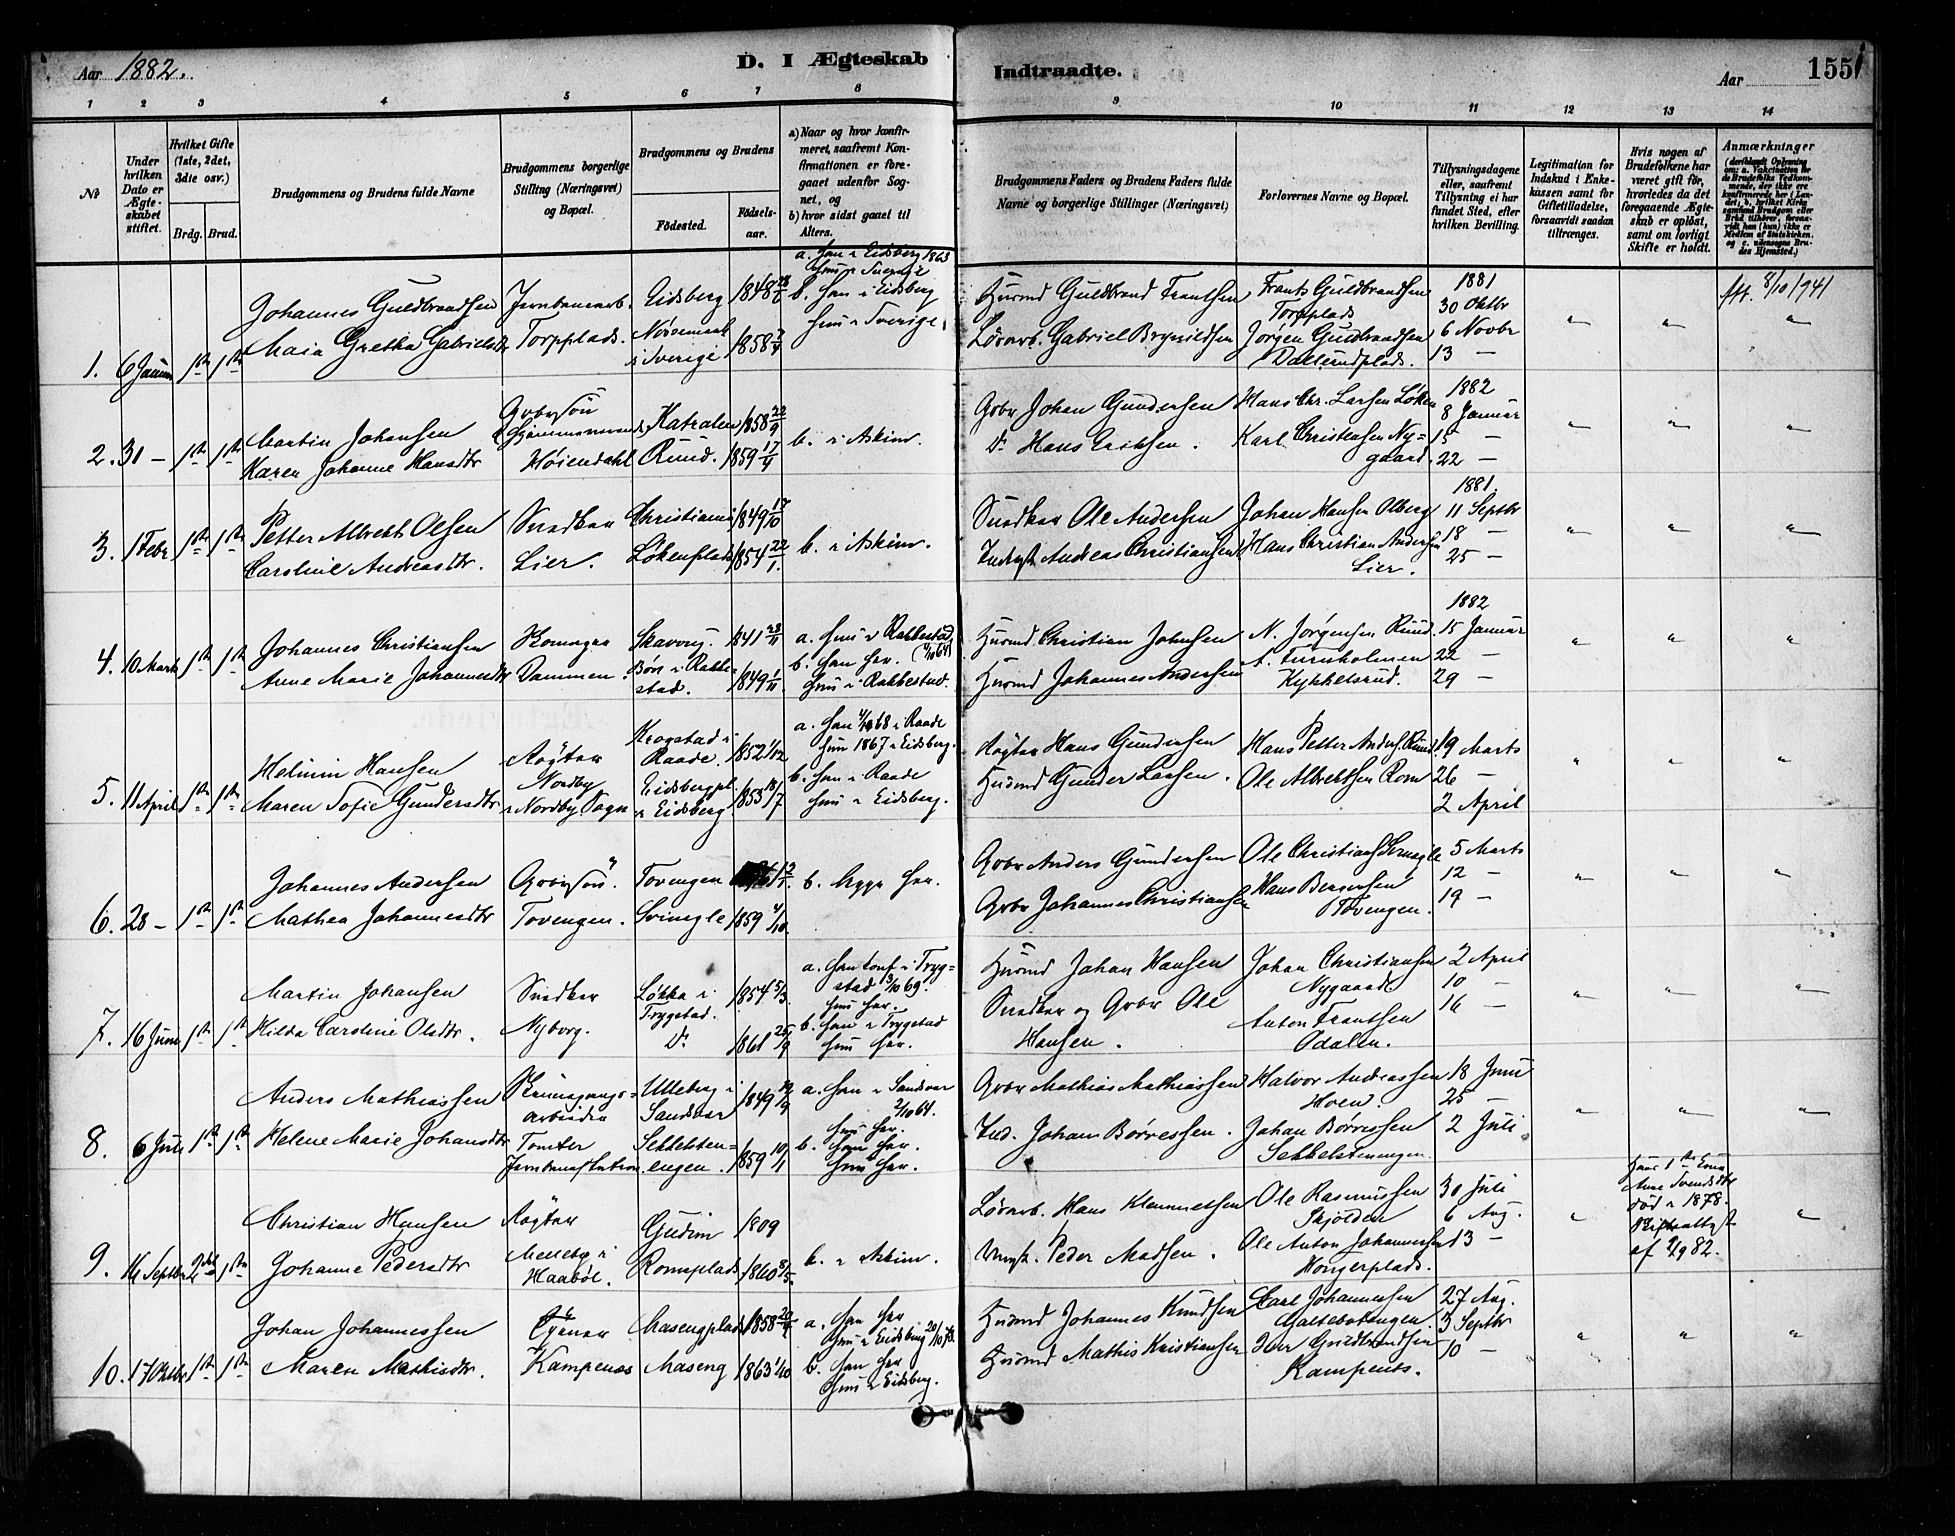 Aar 1882.
D. I Ægteskab
Indtraadte.
Aar
155
1 2 3 4 5 6 7 8 9 10 11 12 13 14
No
Under hvilken Dato er Ægteskabet stiftet.
Hvilket Gifte (1ste, 2det, 3die osv.)
Brdg. Brud.
Brudgommens og Brudens fulde Navne
Brudgommens borgerlige Stilling (Næringsvei) og Bopæl.
Brudgommens og Brudens
Fødested.
Fødselsaar.
a) Naar og hvor konfirmeret, saafremt Konfirmationen er foregaaet udenfor Sognet, og
b) hvor sidst gaaet til Alters.
Brudgommens Faders og Brudens Faders fulde Navne og borgerlige Stillinger (Næringsvei)
Forlovernes Navne og Bopæl.
Tillysningsdagene eller, saafremt Tillysning ei har fundet Sted, efter hvilken Bevilling.
Legitimation for Indskud i Enkekassen samt for Giftetilladelse, forsaavidt saadan tiltrænges.
Hvis nogen af Brudefolkene har været gift før, hvorledes da det foregaaende Ægteskab er opløst, samt om lovligt Skifte er holdt.
Anmærkninger
1. 6 Januar 1ste 1ste
Johannes Guldbrandsen
Maia Gretha Gabrielsdtr
Jernbanearb.
Torpplads.
Eidsberg 1848
i Sverige 1858
a. Han i Eidsberg 1863
Hun i Sverige
b. Han i Eidsberg
Hun i Sverige.
Husmd Guldbrand Frantsen
Løsarb. Gabriel Brynildsen
Frants Guldbrandsen
Torpplads
Jørgen Guldbrandsen
1881
30 Oktbr
6 Novbr
13 —
att. 8/10 1941
2. 31 — 1ste 1ste
Martin Johansen
Karen Johanne Hansdtr
Gbrsøn
Høiendahl
Katralen 1858 22/9
Ruud. 1859 17/4
b. i Askim.
Gbr Johan Gundersen
Do Hans Eriksen.
Hans Chr. Larsen Løken
Karl Christensen Nygaard.
1882
8 Januar
15 —
22 —
3. 1 Febr 1ste 1ste
Petter Albrekt Olsen
Caroline Andreasdtr.
Snedker
Lier.
Christiania 1849 17/10
Løkenplads 1854 22/1.
b. i Askim.
Snedker Ole Andersen
Inderst Andreas Christiansen
Johan Hansen Olberg
Hans Christian Andersen
Lier.
1881.
11 Septbr
18 —
25 —
4. 10 Marts 1ste 1ste
Johannes Christiansen
Anne Marie Johannesdtr
Komager
Dammen.
Skavrug. 1841 28/11
Bøn i Rakkestad. 1849 1/11
a. Hun i Rakkestad
b. Han her.
Hun i Rakkestad.
Husmd Christian Johnsen
Husmd Johannes Andersen
N. Jørgensen Ruud.
A. Furuholmen
Kykkelsrud.
1882
15 Januar
22 —
29 —
5. 11 April 1ste 1ste
Helmin Hansen
Maren Sofie Gundersdtr
Røgter
Nordby
i Nordby Sogn
Krogstad i
Raade. 1852 1/12
Eidsbergpl.
i Eidsberg 1853 13/7
a. Han 1/10 68 i Raade
Hun 1867 i Eidsberg.
b. Han i Raade
Hun i Eidsberg.
Røgter Hans Gundersen
Husmd Gunder Larsen.
Hans Petter Anders. Ruud
Ole Albrektsen Rom
19 Marts
26 —
2 April
6. 28 — 1ste 1ste
Johannes Andersen
Mathea Johannesdtr
Gbrsøn.
Tovengen.
Tovengen
Svinegle 1859 4/10
b. Begge her.
Gbr Anders Gundersen
Gbr Johannes Christiansen
Ole Christians. Svinegle
Hans Bergersen
Tovengen.
5 Marts
12 —
19 —
7. 16 Juni 1ste 1ste
Martin Johansen
Hilda Caroline Olsdtr.
Snedker
Nyborg.
Løkka i
Trygstad. 1854 5/3.
Do 1861 25/9
a. Han konf. i Trygstad 3/10 69.
Hun her.
b. Han i Trygstad
Hun her.
Husmd Johan Hansen
Snedker og Gbr Ole
Hansen.
Johan Christiansen
Nygaard
Anton Frantsen
Odalen.
2 April
10 —
16 —
8. 6 Juli 1ste 1ste
Anders Mathiassen
Helene Marie Johansdtr
arbeider
Tomter
Jernbanestation
Ulleberg i
Sandsvær 1849
Sekkelstenengen. 1859 10/1
a. Han i Sandsvær
2/10 64.
Hun her.
b. Han her.
Hun her.
Gbr Mathias Mathiassen
Ind. Johan Børresen.
Halvor Andreassen
Hoen.
Johan Børresen
Sekkelstenengen.
18 Juni
25 —
2 Juli
9. 16 Septbr 2det 1ste
Christian Hansen
Johanne Pedersdtr
Røgter
Haabøl.
Gudim 1809
Romsplads 1860 8/5.
b. i Askim.
Løsarb. Hans Klemmetsen
Peder Madsen.
Ole Rasmussen
Skjolden
Ole Anton Johannessen
Hongerplads.
30 Juli
6 Aug.
13 —
Hans 1ste Kone
Anne Svendsdtr
død i 1878.
Skifteattest
af 2/9 82.
10. 17 Oktbr 1ste 1ste
Johan Johannessen
Maren Mathisdtr.
Kampenes
Masengplads 1858
Maseng 1863 1/10
a. Han her
Hun i Eidsberg 20/10 78.
b. Han her
Hun i Eidsberg.
Husmd Johannes Knudsen
Husmd Mathis Kristiansen
Carl Johannessen
Galtebottngen.
Iver Guldbrandsen
Kampenes.
27 Aug.
3 Septbr
10 —